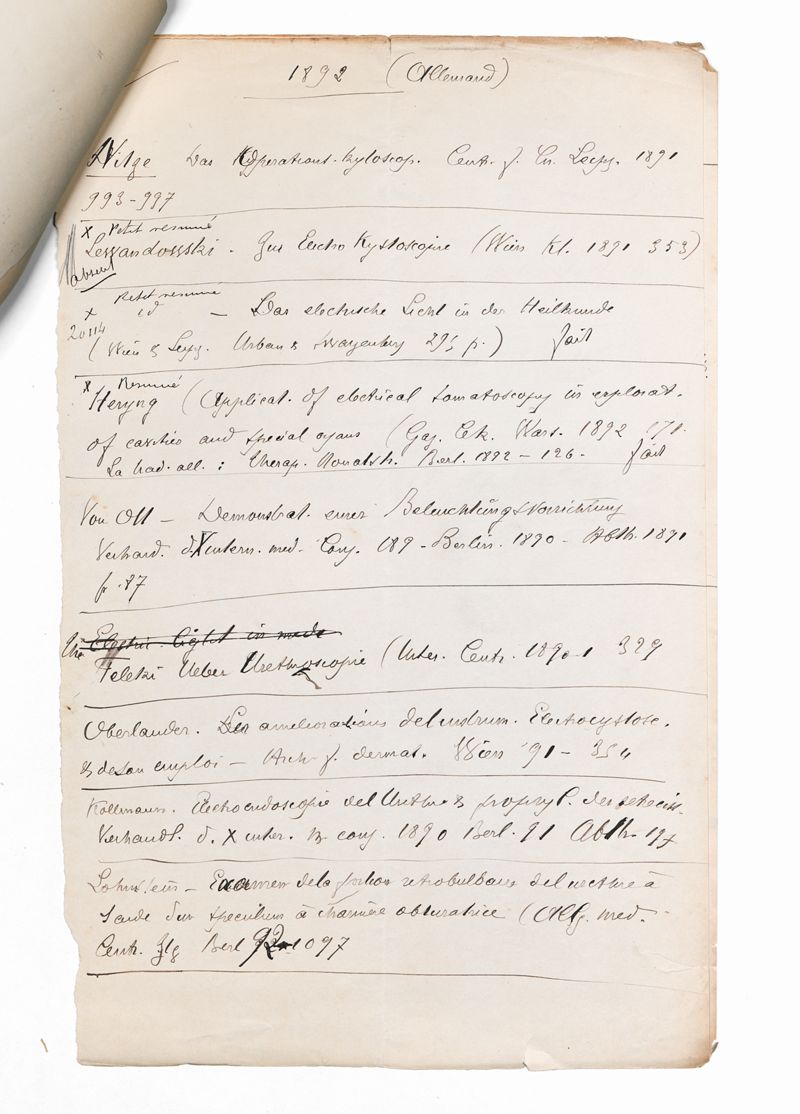 1892 (Allemand)
Nitze Das Operations-Kystoscop. Centr. f. Ch. Leipz. 1891
993-997
x Petit resumé
Lewandowski. Zur Electro Kystoscopie (Wien Kl. 1891 353)
absent
x Petit resumé
id — Das electrische Licht in der Heilkunde
20114
(Wien & Leipz. Urban & 295 p.) fait
x Resumé
Heryng (Applicat. of electrical somatoscopy in explorat.
of cavities and special organs (Gaz. lek. Wars. 1892 171.
La trad. all. : Therap. Monatsh. Berl. 1892 - 126. fait
Von Ott — Demonstrat. einer Beleuchtungsvorrichtung
Verhand. d. X intern. med. Cong. 189 - Berlin. 1890 - Abth. 1891
p. 87
Electric light in mede
Teleki Ueber Urethroscopie (Inter. Centr. 1890-1 329
Oberlander. Les ameliorations del instrum. Electrocystosc.
& de son emploi — Arch f. dermat. Wien '91 - 354
Kollmann. Electroendoscopie del Urethre &
Verhandl. d. X inter. m cong. 1890 Berl. 91 Abth. 197
Lohnstein — Examen de la portion retrobulbaire del urethre à
l'aide d'un speculum à charnière obturatrice (Allg. med.
Centr. Ztg Berl 92 1097